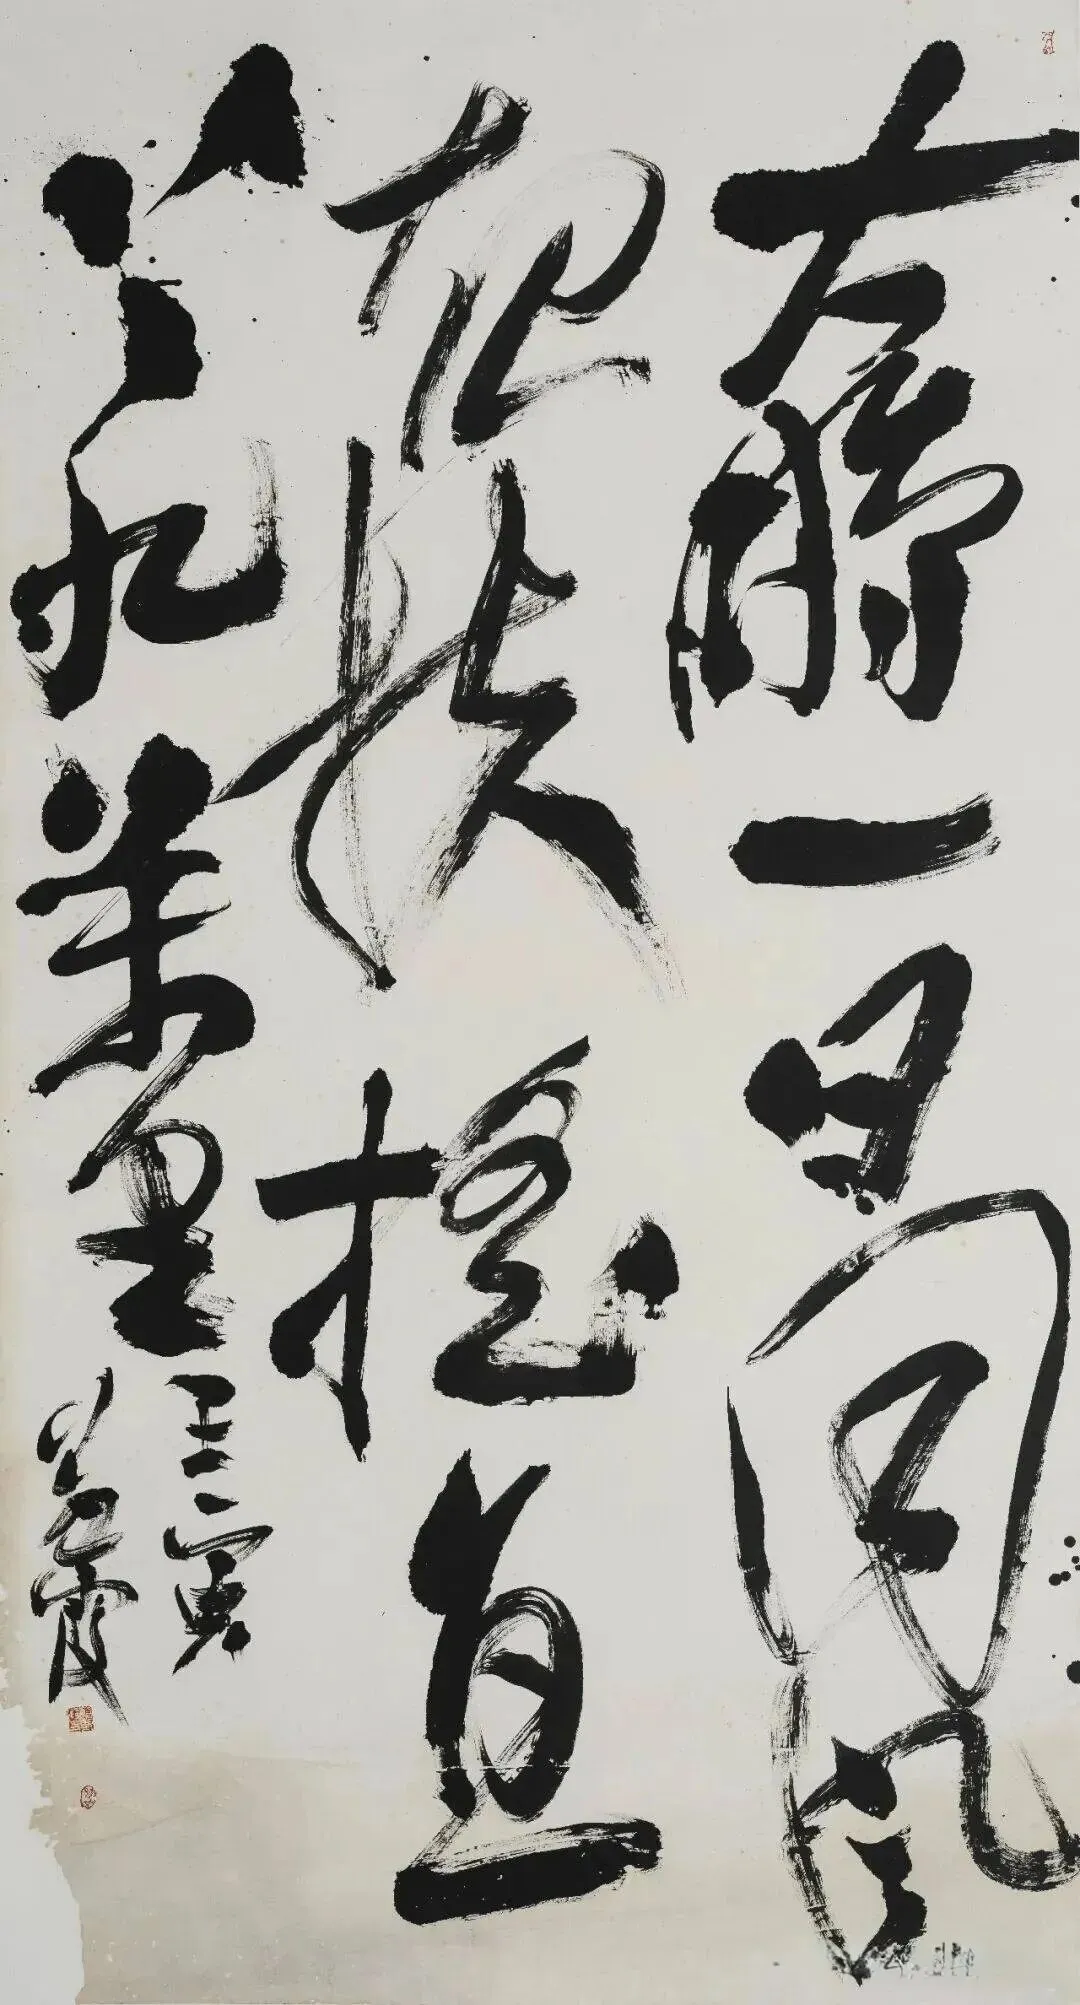 鹏一日同风
起扶摇直
上九万里
壬寅